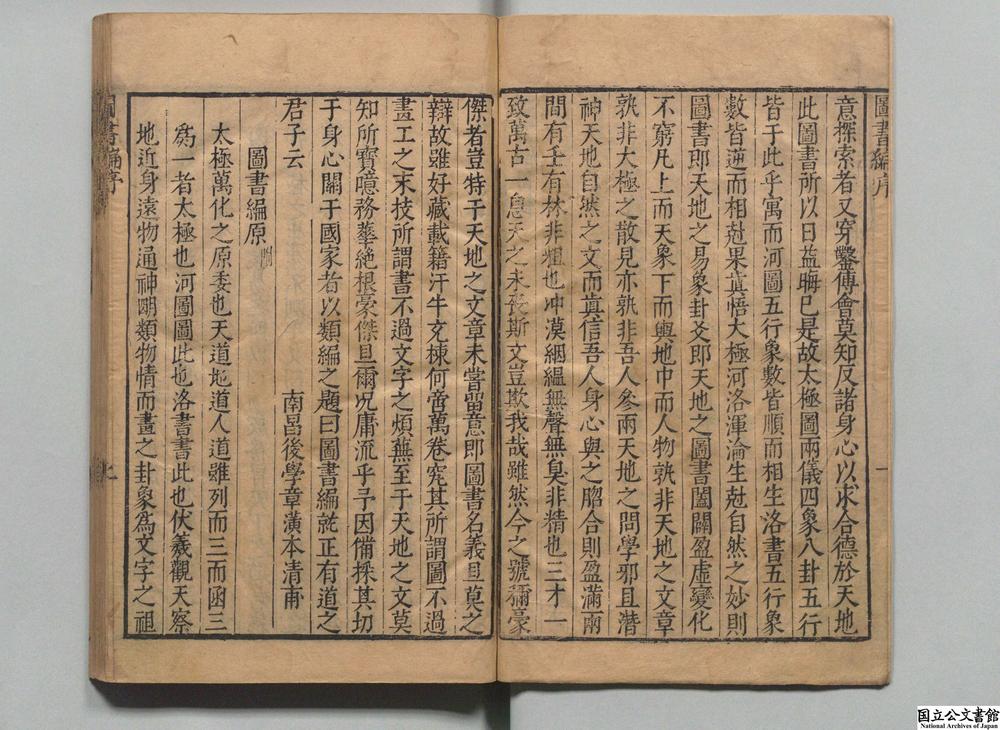 圖書編序
意探索者又穿鑿傅會莫知反諸身心以求合德於天地
此圖書所以日益晦已是故太極圖兩儀四象八卦五行
皆于此乎寓而河圖五行象數皆順而相生洛書五行象
數皆逆而相尅果眞悟大極河洛渾淪生尅自然之妙則
圖書即天地之易象卦爻即天地之圖書闔闢盈虛變化
不窮凡上而天象下而輿地巾而人物孰非天地之文章
孰非大極之散見亦孰非吾人參兩天地之問學邪且濳
神天地自然之文而眞信吾人身心與之脗合則盈滿兩
間有壬有林非粗也冲漠絪縕無聲無臭非精也三才一
致萬古一息天之未喪斯文豈欺我哉雖然今之號稱豪
傑者豈特于天地之文章未嘗畱意即圖書名義且莫之
辯故雖好藏載籍汗牛充棟何啻萬卷究其所謂圖不過
畫工之末技所謂書不過文字之煩蕪至于天地之文莫
知所寶噫務華絶根豪傑且爾况庸流乎予因備採其切
于身心關于國家者以類編之題曰圖書編就正有道之
君子云
南昌後學章潢本清甫
圖書編原
太極萬化之原委也天道地道人道雖列而三而函三
爲一者太極也河圖圖此也洛書書此也伏羲觀天察
地近身遠物通神明類物情而畫之卦象爲文字之祖
圖書編序
国立公文書館
National Archives of Japan